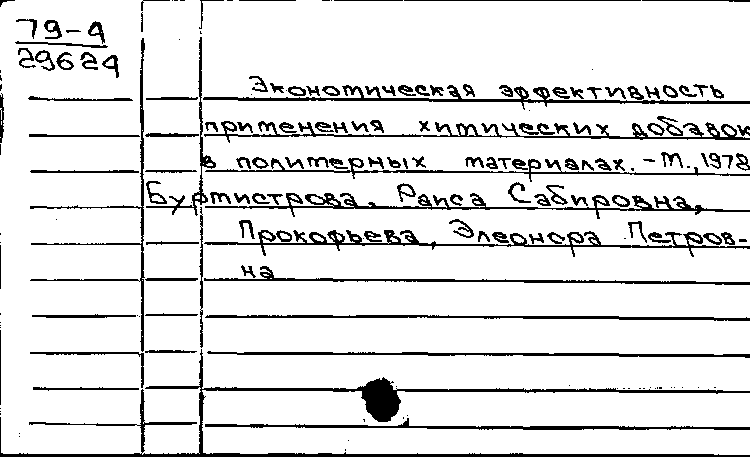 79-4
29624
Экономическая эффективность
применения химических добавок
в полимерных материалах. - М., 1978
Бурмистрова, Раиса Сабировна,
Прокофьева, Элеонора Петров-
на